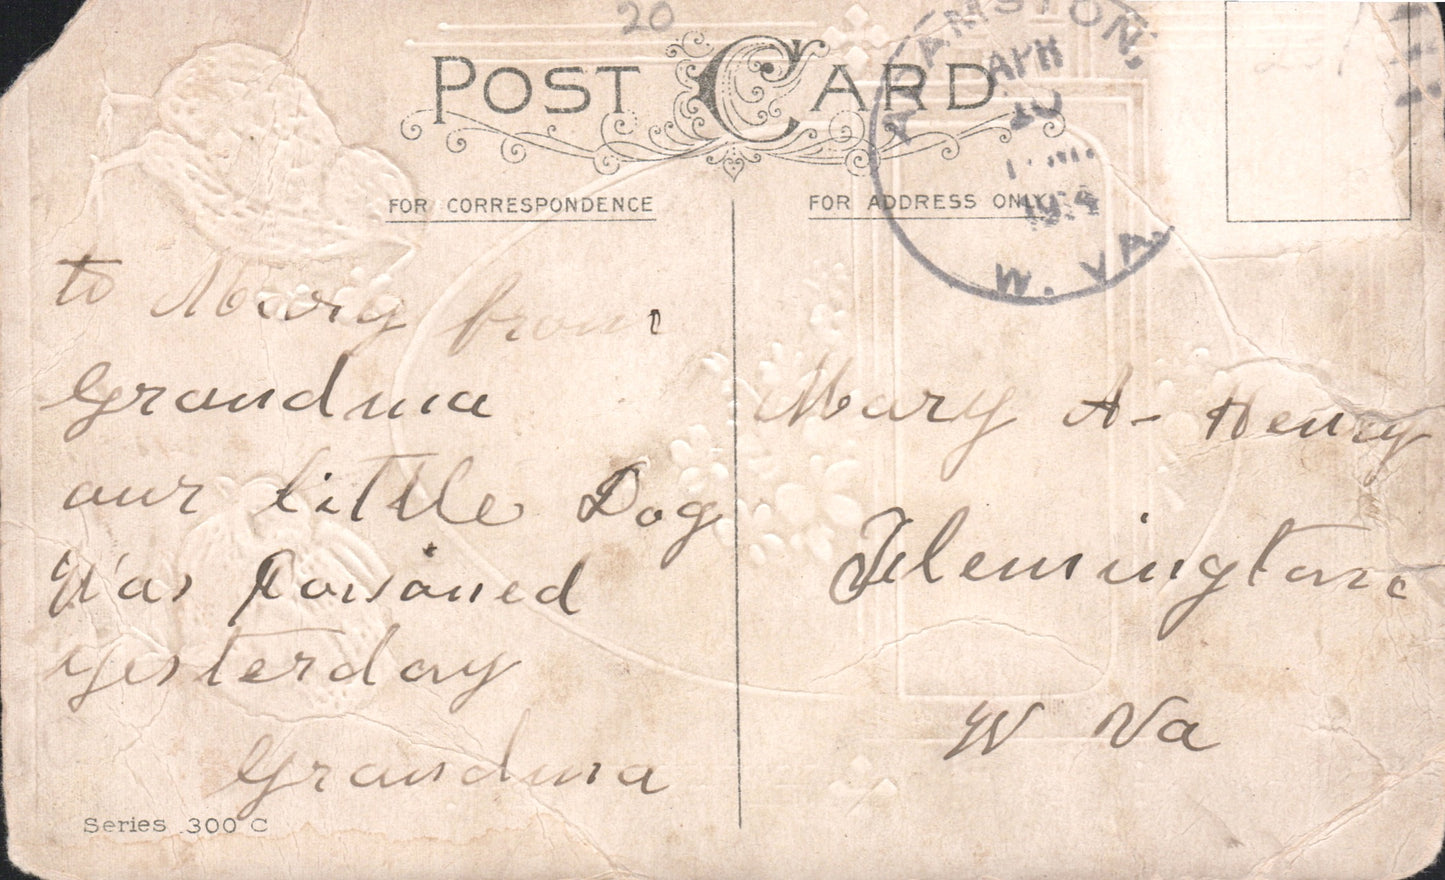 20
POST CARD
ADAMSTON,
APR
10
1914
W. VA.
FOR CORRESPONDENCE
FOR ADDRESS ONLY
to Mary from
Grandma
our little Dog
Was Poisoned
yesterday
Grandma
Series 300 C
Mary A- Henry
Flemington
W Va